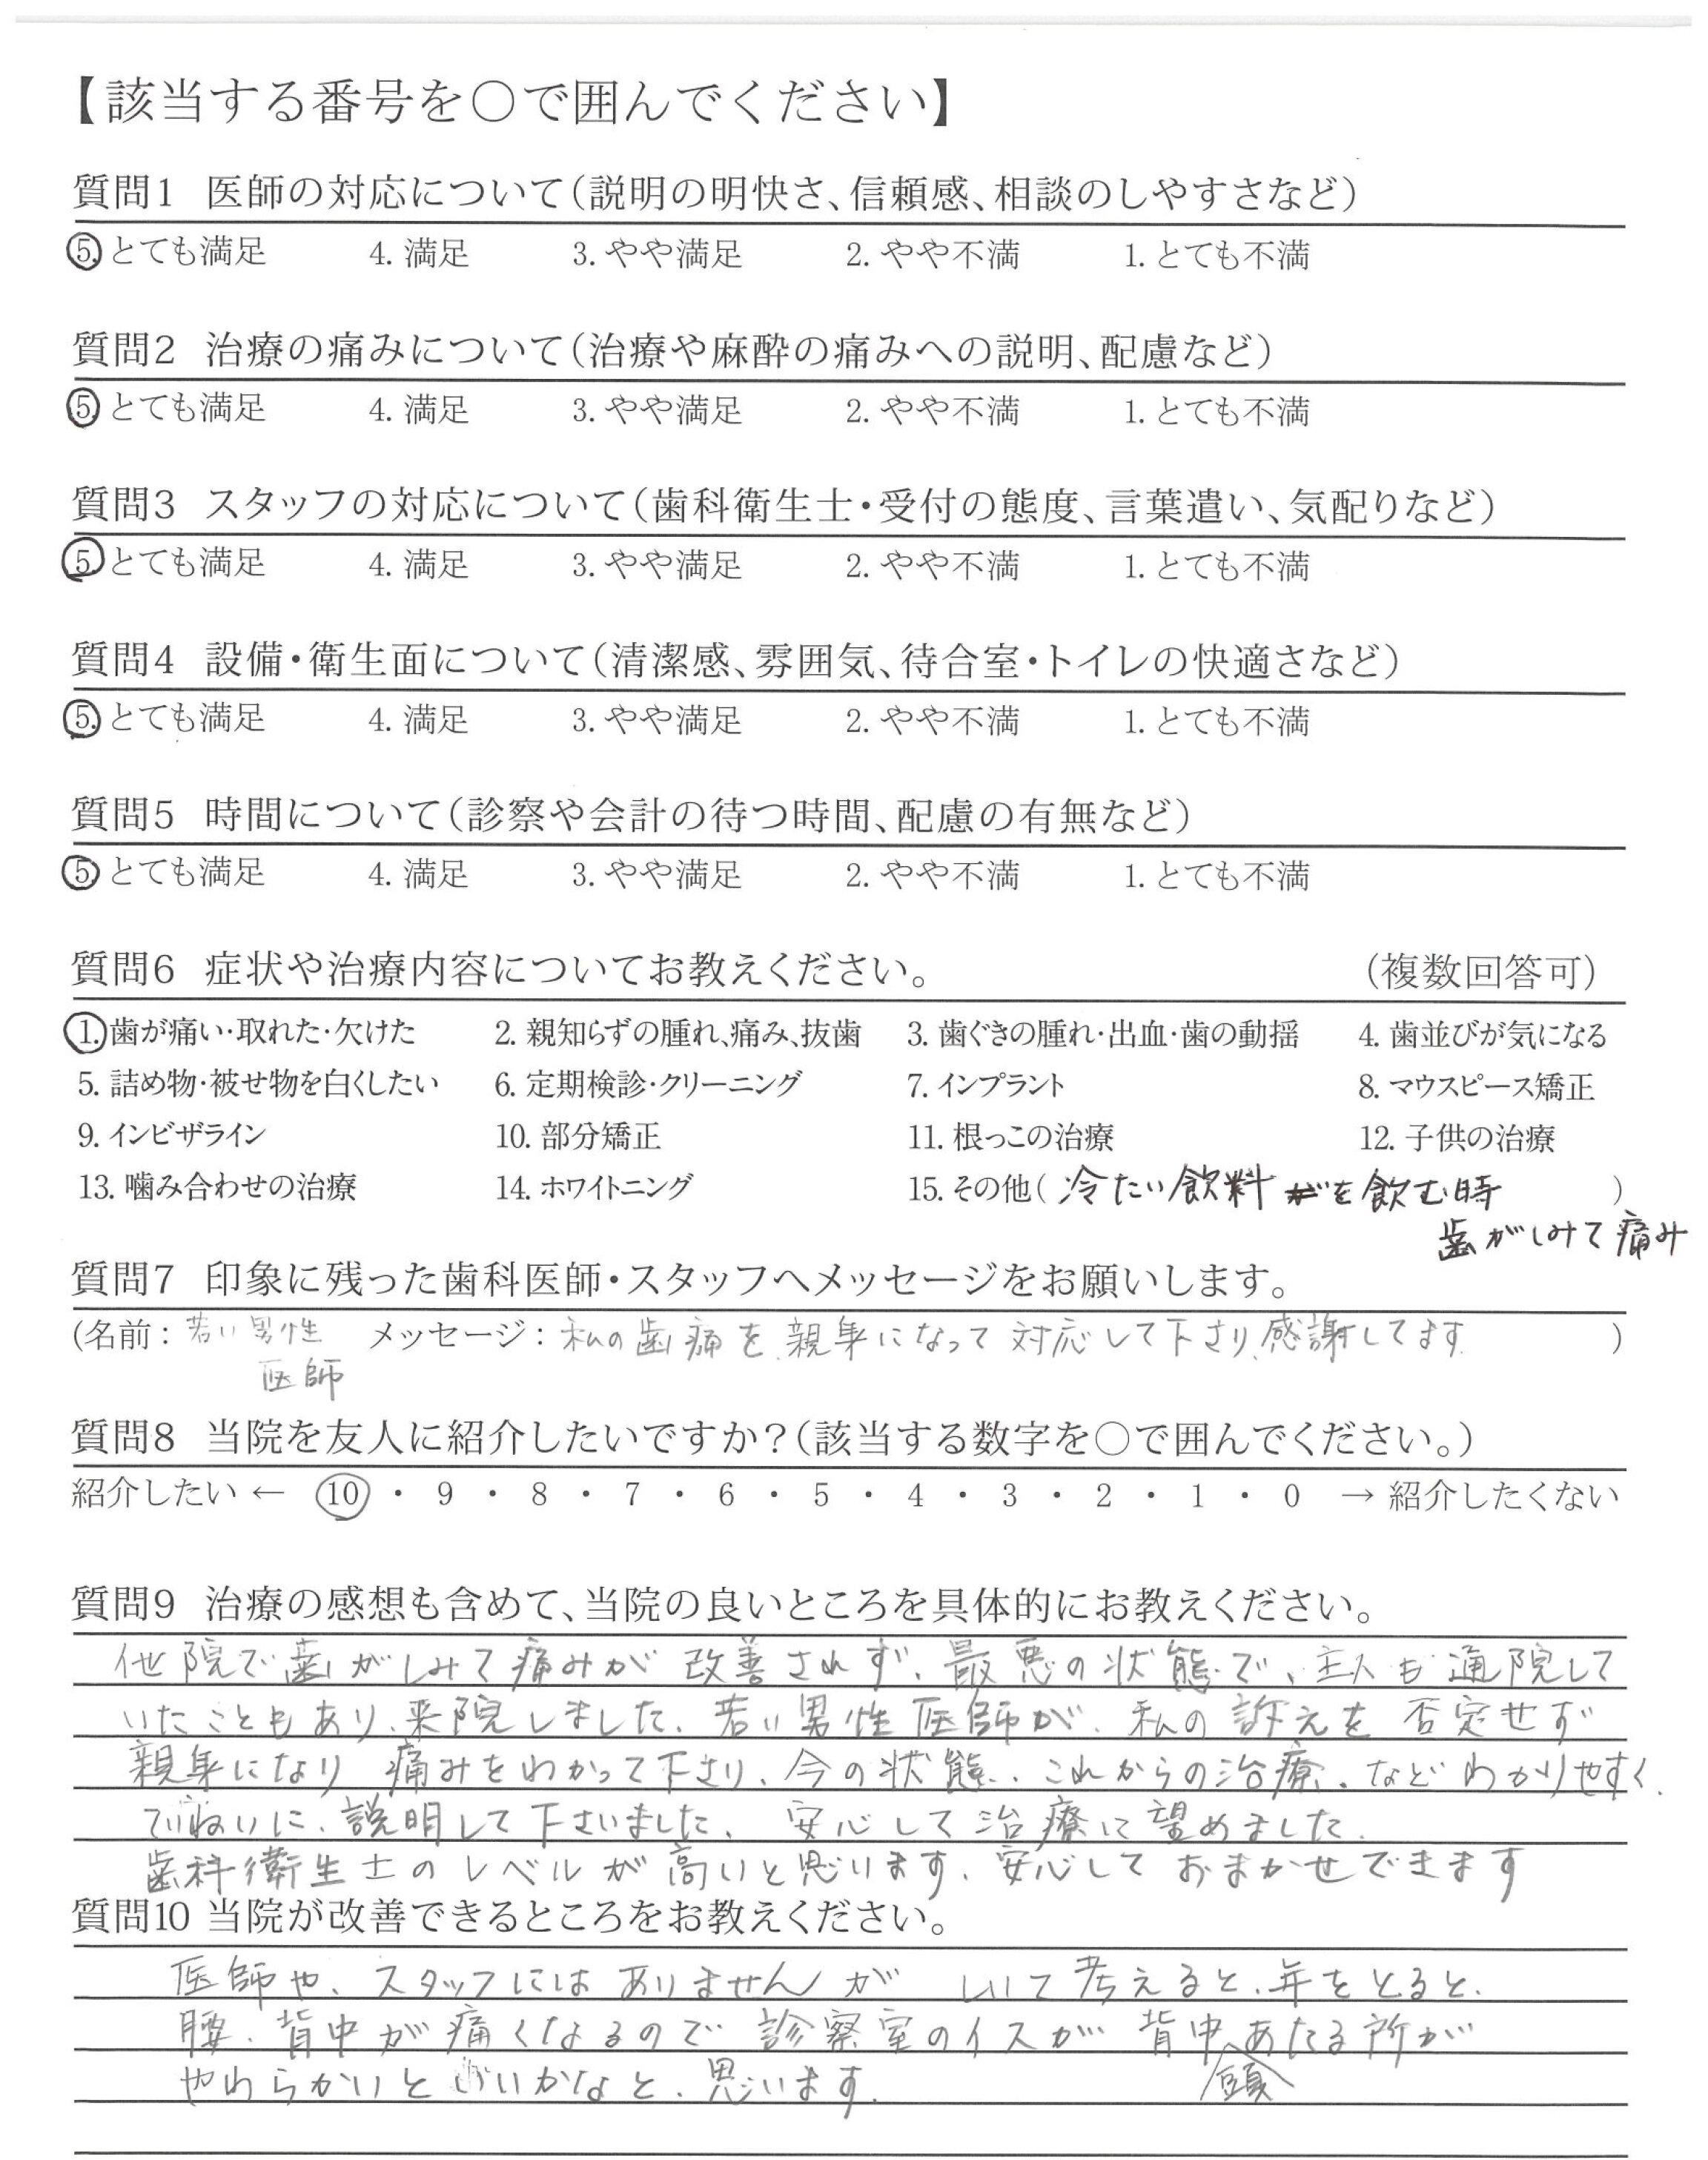 【該当する番号を○で囲んでください】
質問1 医師の対応について(説明の明快さ、信頼感、相談のしやすさなど)
5. とても満足 4. 満足 3. やや満足 2. やや不満 1. とても不満
質問2 治療の痛みについて(治療や麻酔の痛みへの説明、配慮など)
5. とても満足 4. 満足 3. やや満足 2. やや不満 1. とても不満
質問3 スタッフの対応について(歯科衛生士・受付の態度、言葉遣い、気配りなど)
5. とても満足 4. 満足 3. やや満足 2. やや不満 1. とても不満
質問4 設備・衛生面について(清潔感、雰囲気、待合室・トイレの快適さなど)
5. とても満足 4. 満足 3. やや満足 2. やや不満 1. とても不満
質問5 時間について(診察や会計の待つ時間、配慮の有無など)
5. とても満足 4. 満足 3. やや満足 2. やや不満 1. とても不満
質問6 症状や治療内容についてお教えください。 (複数回答可)
1. 歯が痛い・取れた・欠けた 2. 親知らずの腫れ、痛み、抜歯 3. 歯ぐきの腫れ・出血・歯の動揺 4. 歯並びが気になる
5. 詰め物・被せ物を白くしたい 6. 定期検診・クリーニング 7. インプラント 8. マウスピース矯正
9. インビザライン 10. 部分矯正 11. 根っこの治療 12. 子供の治療
13. 噛み合わせの治療 14. ホワイトニング 15. その他( 冷たい飲料を飲む時 )
歯がしみて痛み
質問7 印象に残った歯科医師・スタッフへメッセージをお願いします。
(名前: 若い男性 メッセージ: 私の歯痛を、親身になって対応して下さり、感謝してます )
医師
質問8 当院を友人に紹介したいですか?(該当する数字を○で囲んでください。)
紹介したい ← 10 ・ 9 ・ 8 ・ 7 ・ 6 ・ 5 ・ 4 ・ 3 ・ 2 ・ 1 ・ 0 → 紹介したくない
質問9 治療の感想も含めて、当院の良いところを具体的にお教えください。
他院で歯がしみて痛みが改善されず、最悪の状態で、主人も通院して
いたこともあり、来院しました。若い男性医師が、私の訴えを否定せず
親身になり 痛みをわかって下さり、今の状態、これからの治療、などわかりやすく、
ていねいに、説明して下さいました。安心して治療に望めました。
歯科衛生士のレベルが高いと思います、安心しておまかせできます
質問10 当院が改善できるところをお教えください。
医師や、スタッフにはありませんが しいて考えると、年をとると、
腰、背中が痛くなるので診察室のイスが背中、あたる所が
頭
やわらかいといいかなと、思います。